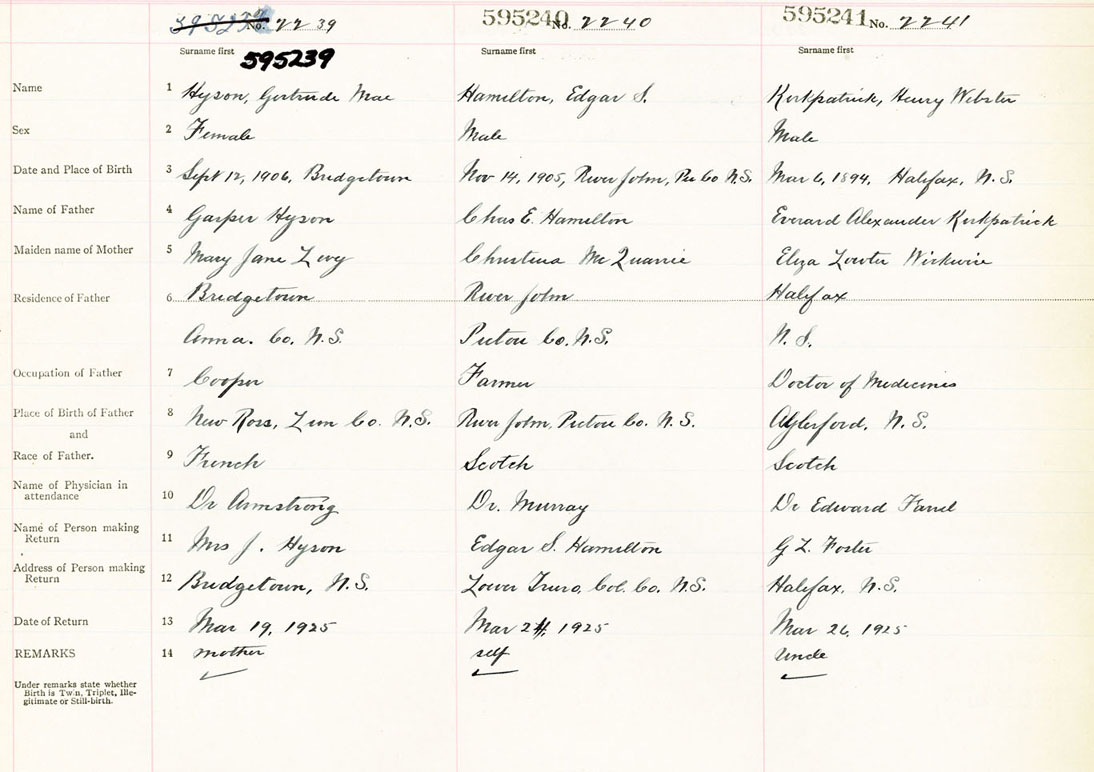 No. 2239 595240 No. 2240 595241 No. 2241
Surname first Surname first Surname first
595239
Name 1 Hyson, Gertrude Mae Hamilton, Edgar S. Kirkpatrick, Henry Webster
Sex 2 Female Male Male
Date and Place of Birth 3 Sept 12, 1906, Bridgetown Nov 14, 1905, River John, Pic Co N.S. Mar 6, 1894, Halifax, N.S.
Name of Father 4 Gasper Hyson Chas E. Hamilton Everard Alexander Kirkpatrick
Maiden name of Mother 5 Mary Jane Levy Christina McQuarrie Eliza Lowter Wickwire
Residence of Father 6 Bridgetown River John Halifax
Anna. Co. N.S. Pictou Co. N.S. N.S.
Occupation of Father 7 Cooper Farmer Doctor of Medicines
Place of Birth of Father 8 New Ross, Lun Co. N.S. River John, Pictou Co. N.S. Aylesford, N.S.
and
Race of Father. 9 French Scotch Scotch
Name of Physician in
attendance 10 Dr Armstrong Dr. Murray Dr Edward Farrel
Name of Person making
Return 11 Mrs J. Hyson Edgar S. Hamilton G L. Foster
Address of Person making
Return 12 Bridgetown, N.S. Lower Truro, Col. Co. N.S. Halifax, N.S.
Date of Return 13 Mar 19, 1925 Mar 24, 1925 Mar 26, 1925
REMARKS 14 mother self Uncle
Under remarks state whether
Birth is Twin, Triplet, Ille-
gitimate or Still-birth.